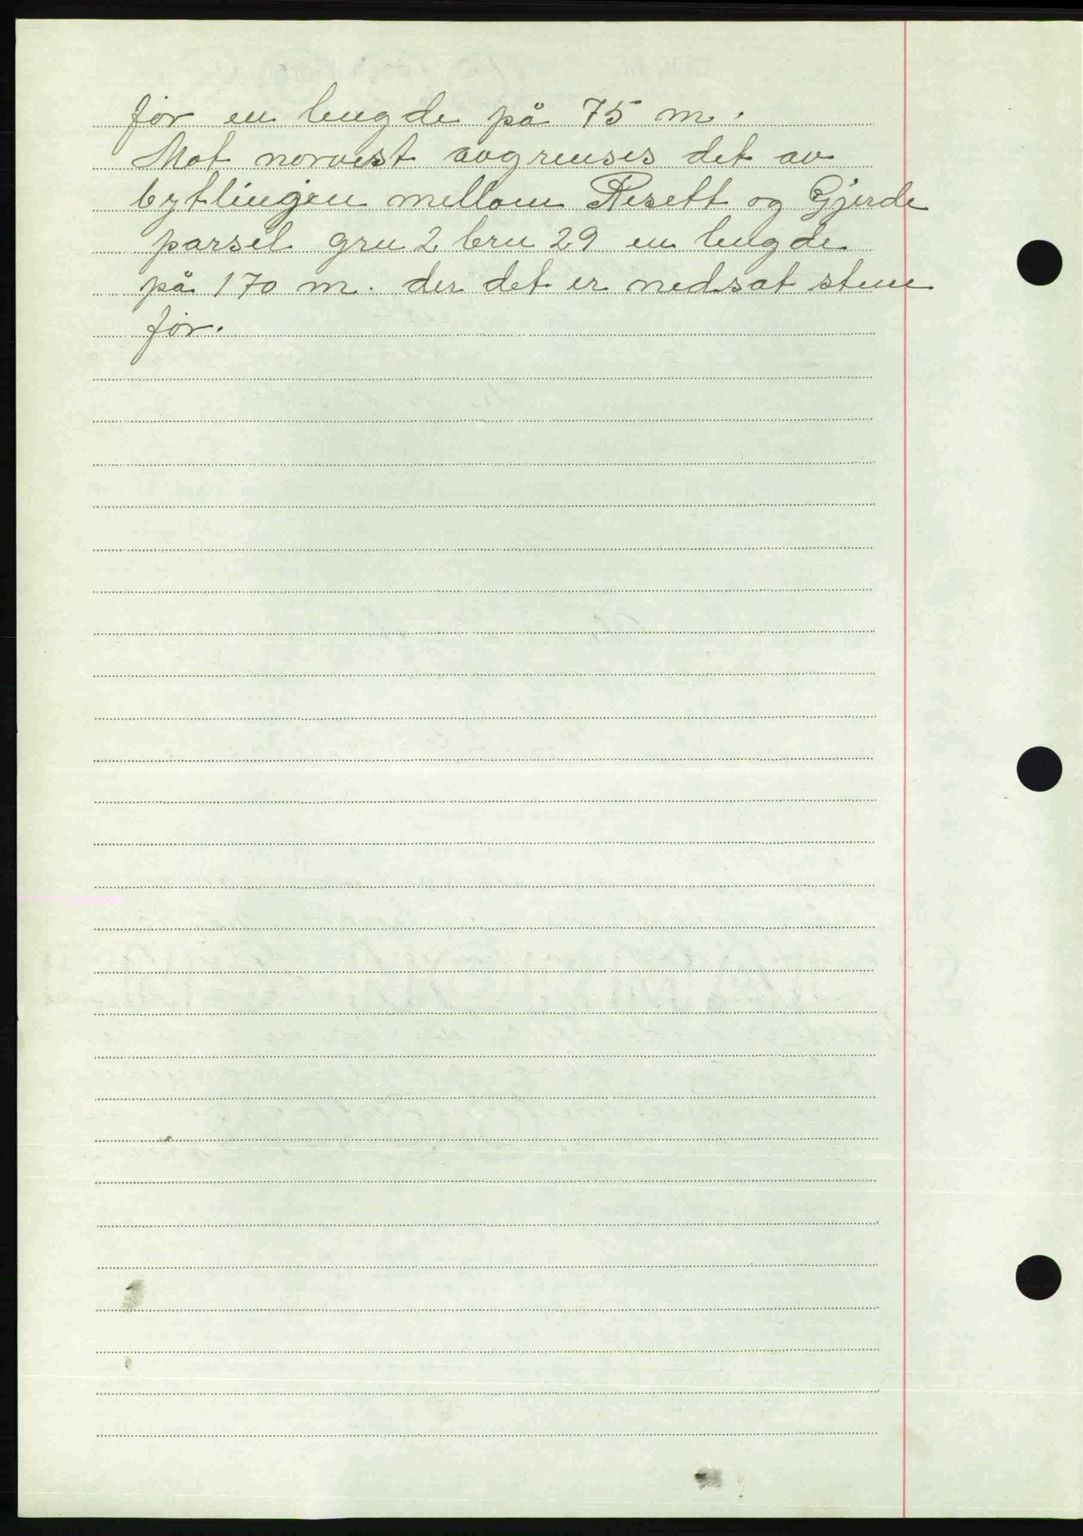 för en lengde på 75 m.
Mot norvest avgrenses det av
bytlingen mellom Resett og Gjerde
parsel gru 2 bru 29 en lengde
på 170 m. der det er nedsat stene
för.